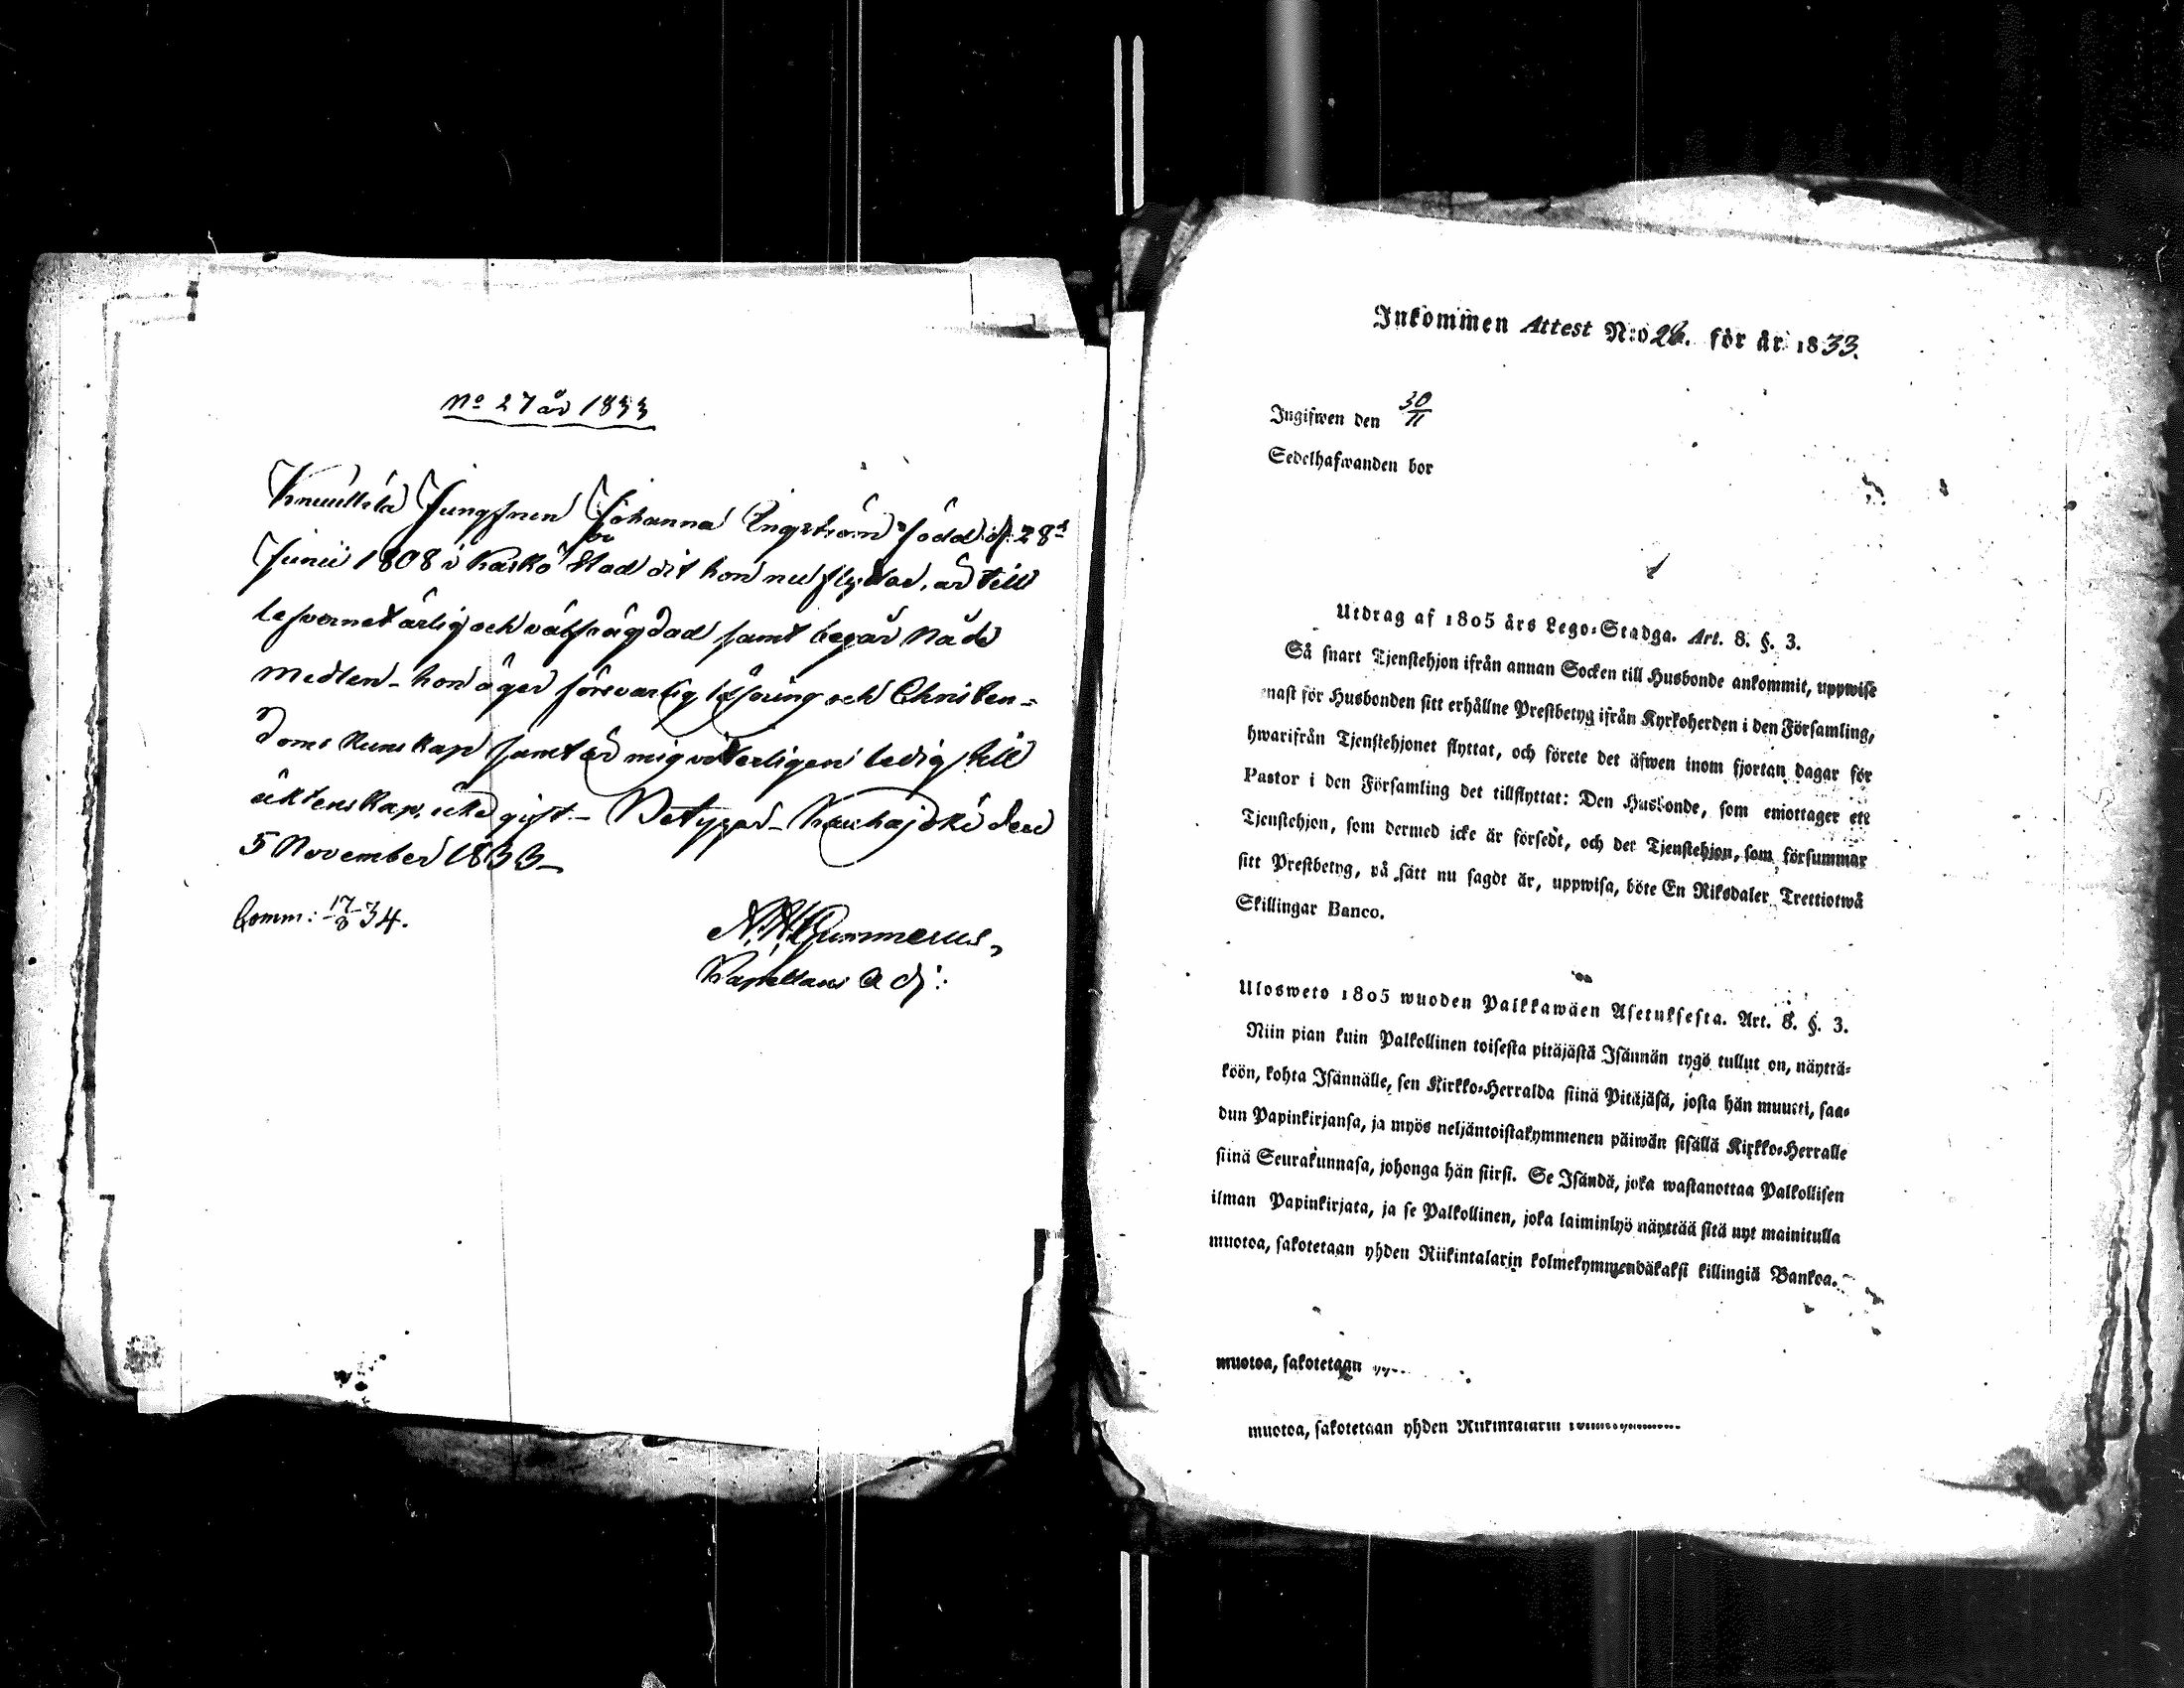 No 27 år 1833
Jungfrun Johanna Engström född d. 28d
Junii 1808 i Kaskö Stad dit hon nu flyttar, är till
lefvernet ärlig och välfrägdad samt begår Nåde
medlen - hon äger försvarlig läsning och Christen-
doms kunskap samt är mig veterligen ledig till
äktenskap, icke gift. - Betygar - Kauhajoki den
5 November 1833 -
Comm: 17/8 34.
Gummerus,
Kapellans Adj:
Inkommen Attest N:o 28. för år 1833.
Ingifwen den 30/11
Sedelhafwanden bor
Utdrag af 1805 års Lego-Stadga. Art. 8. §. 3.
Så snart Tjenstehjon ifrån annan Socken till Husbonde ankommit, uppwise
enast för Husbonden sitt erhållne Prestbetyg ifrån Kyrkoherden i den Församling,
hwarifrån Tjenstehjonet flyttat, och förete det äfwen inom fjortan dagar för
Pastor i den Församling det tillflyttat: Den Husbonde, som emottager ett
Tjenstehjon, som dermed icke är försedt, och det Tjenstehjon, som försummar
sitt Prestbetyg, på sätt nu sagdt är, uppwisa, böte En Riksdaler Trettiotwå
Skillingar Banco.
Ulosweto 1805 wuoden Palkkawäen Asetuksesta. Art. 8. §. 3.
Niin pian kuin Palkollinen toisesta pitäjästä Isännän tygö tullut on, näyttä-
köön, kohta Isännälle, sen Kirkko-Herralda siinä Pitäjäsä, josta hän muutti, saa-
dun Papinkirjansa, ja myös neljäntoistakymmenen päiwän sisällä Kirkko-Herralle
siinä Seurakunnasa, johonga hän siirsi. Se Isändä, joka wastanottaa Palkollisen
ilman Papinkirjata, ja se Palkollinen, joka laiminlyö näyttää sitä nyt mainitulla
muotoa, sakotetaan yhden Riikintalarin kolmekymmendäkaksi killingiä Bankoa.
muotoa, sakotetaan
muotoa, sakotetaan yhden Riikintalarin